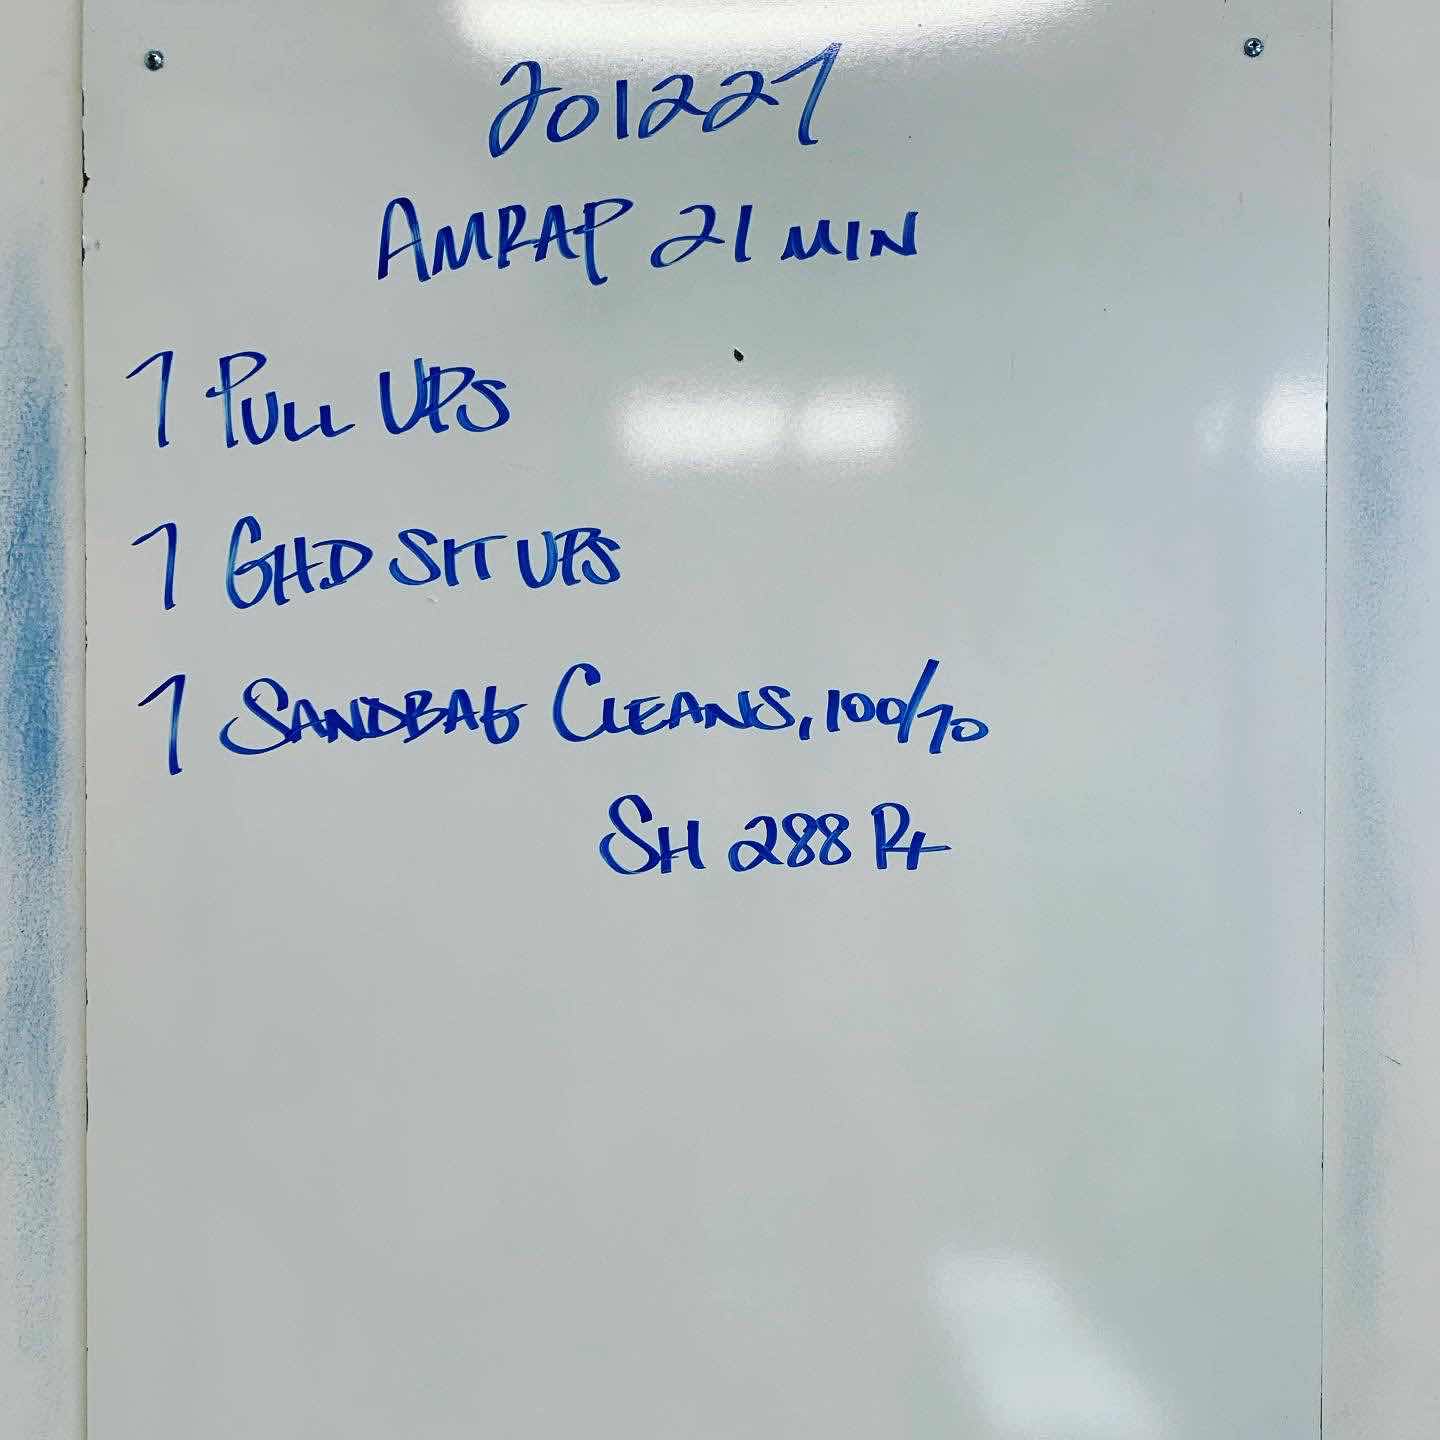 201227
AMRAP 21 MIN
7 PULL UPS
7 GHD SIT UPS
7 SANDBAG CLEANS, 100/70
SH 288 Rx